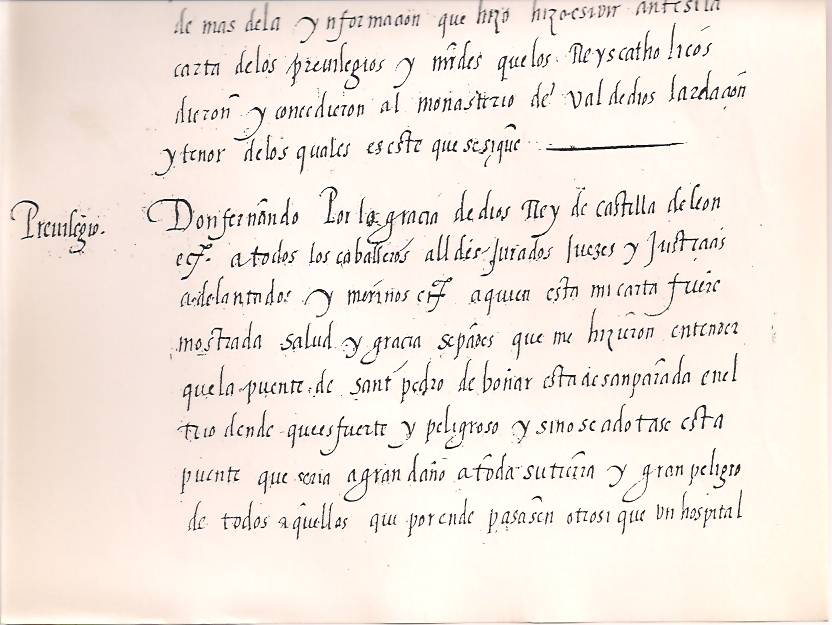 de mas dela ynformaçion que hizo hizo escrivir antesila
carta delos previlegios y mrdes quelos Reyscatholicos
dieron y concedieron al monasterio de valdedios larelaçon
ytenor delos quales es este que sesigue
Previlegio.
Donfernando Por la gracia de dios Rey de castilla de leon
ecta atodos los caballeros allds Jurados Juezes y Justiçias
adelantados y merinos ecta aquien esta mi carta fuere
mostrada salud y gracia sepades que me hizieron entender
quela puente de Sant pedro de boñar esta desanparada enel
rrio dende quees fuerte y peligroso y sino se adotase esta
puente que seria agran daño atoda su tierra y gran peligro
de todos aquellos que por ende pasasen otrosi que un hospital